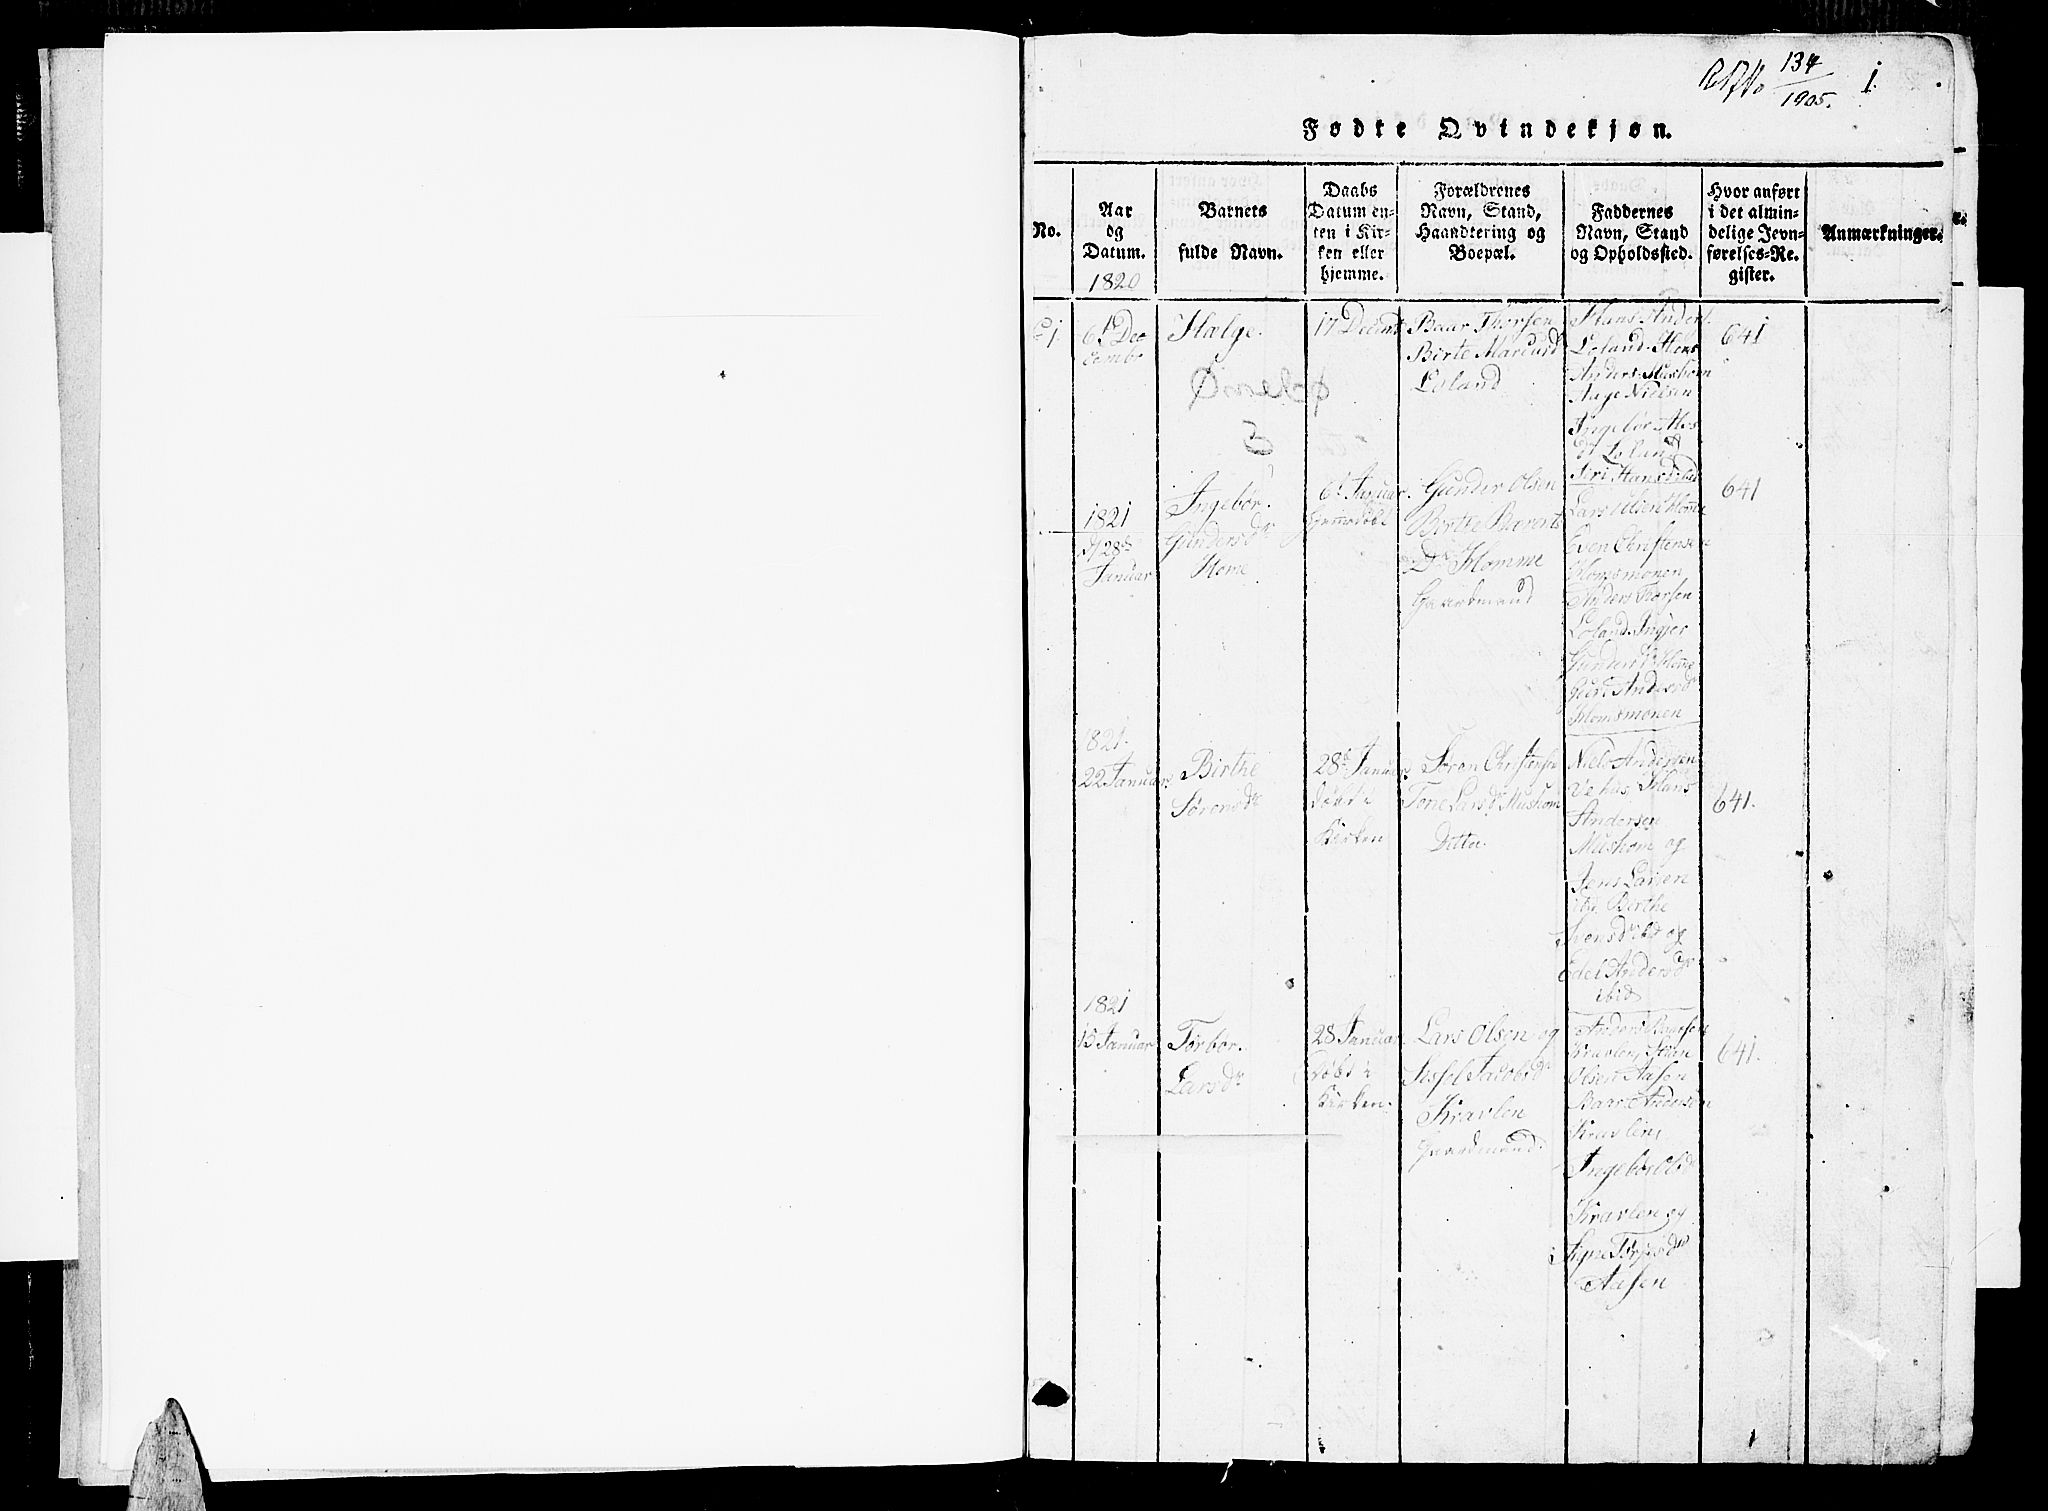 134
1905.
1
Fødte Qvindekjøn.
No.
Aar
og
Datum.
1820
Barnets
fulde Navn.
Daabs
Datum en-
ten i Kir-
ken eller
hjemme.
Forældrenes
Navn, Stand,
Haandtering og
Boepæl.
Faddernes
Navn, Stand
og Opholdssted.
Hvor anført
i det almin-
delige Jevn-
førelses-Re-
gister.
Anmærkninger.
1
6 Dec
cembr
Hælge.
17 Decemb
Baar Thorsen
Birte Marcusd
Loland
Hans Anders.
Loland
Anders Mushom
Aage Nielsen
Ingebør
Loland
Siri Hansd ibid
641
1821
28de
Januar
Ingebør
Gundersdr
Home
6t Januar
Hjemmedøbt
Gunder Olsen
Birthe Berents
Dr Homme
Gaardmand
Lars Olsen Home
Even Christensen
Homsmonen
Anders Torsen
Loland Ingier
Gundersd Home
Guri Andersdr
Homsmonen
641
1821.
22 Januar
Birthe
Sørensdr
28de Januar
døbt i
Kirken
Søren Christensen
Tone Larsdr Mushom
Ditto.
Niels Andersen
Vehus Hans
Andersen
Mushom og
Jens Larsen
ibd Birthe
Svensdr ibd og
Edel Andersdr
ibid
641.
1821
15 Januar
Tørbør.
Larsdr
28 Januar
Døbt i
Kirken.
Lars Olsen og
Sissel Jacobsdr
Kravlen
Gaardmand.
Anders Baarsen
Kravlen,
Olsen Aasen
Baar Andersen
Kravlen,
Ingebør Olsdr
Kravlen og
Signe Torjusdr
Aasen
641.